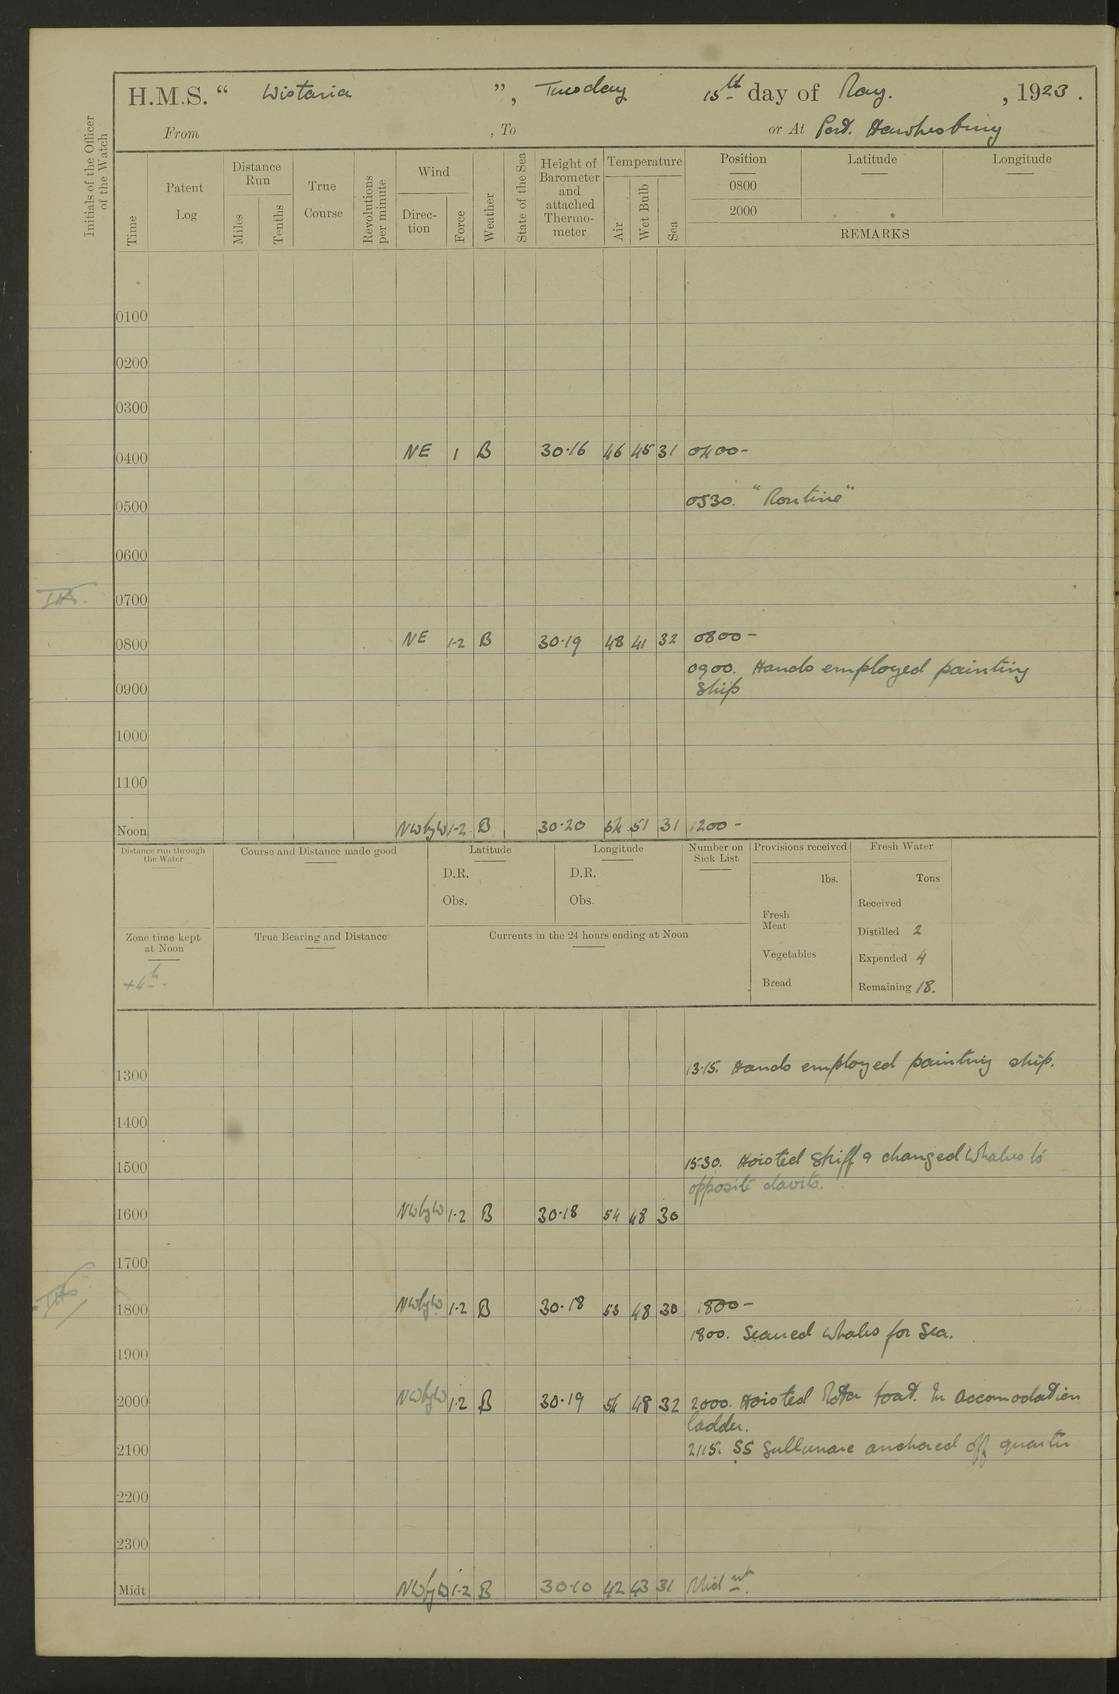 H.M.S. “ Wistaria ”, Tuesday 15th day of May. , 1923.
From , To or At Port. Hawkesbury
Initials of the Officer of the Watch
Time
Patent Log
Distance Run
Miles
Tenths
True Course
Revolutions per minute
Wind
Direction
Force
Weather
State of the Sea
Height of Barometer and attached Thermometer
Temperature
Air
Wet Bulb
Sea
Position Latitude Longitude
0800
2000
REMARKS
0100
0200
0300
0400 NE 1 B 30.16 46 45 31 0400-
0500 0530. "Routine"
0600
0700
0800 NE 1-2 B 30.19 48 41 32 0800-
0900. Hands employed painting
0900 ship
1000
1100
Noon NWbyW 1-2 B 30.20 54 51 31 1200-
Distance run through the Water
Course and Distance made good
Latitude
D.R.
Obs.
Longitude
D.R.
Obs.
Number on Sick List
Provisions received
lbs.
Fresh Meat
Vegetables
Bread
Fresh Water
Tons
Received
Distilled 2
Expended 4
Remaining 18.
Zone time kept at Noon
+4h.
True Bearing and Distance
Currents in the 24 hours ending at Noon
1300 13.15. Hands employed painting ship.
1400
1500 1530. Hoisted Skiff & changed Whalers to
opposite davits.
1600 NWbyW 1-2 B 30.18 54 48 30
1700
1800 NWbyW 1-2 B 30.18 53 48 30 1800-
1800. Seaured whalers for Sea.
1900
2000 NWbyW 1-2 B 30.19 54 48 32 2000. Hoisted Motor boat. In accomodation
ladder.
2100 2115. SS anchored off quarter
2200
2300
Midt NWbyW 1-2 B 30.10 42 43 31 Midnt.